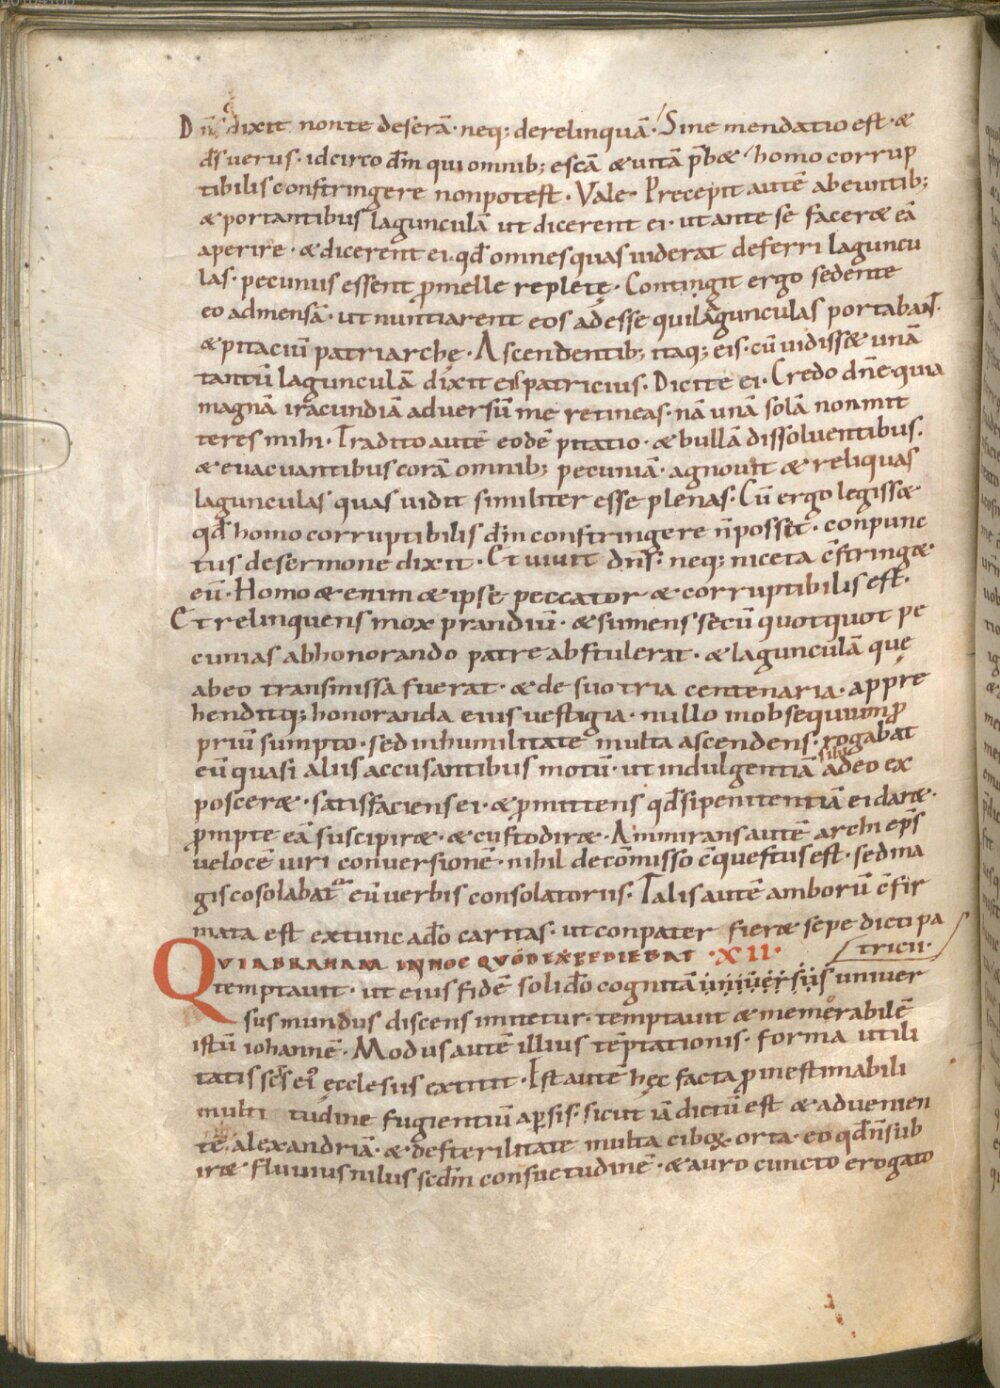 Dn̄s q dixit non te deserā· neq; derelinquā· Sine mendatio est· &
ds̄ verus· idcirco dm̄ qui omnib; escā & uitā p̄b& homo corrup
tibilis constringere non potest· Vale· Precepit autē abeuntib;
& portantibus lagunculā ut dicerent ei· ut ante se facer& eā
aperire· & dicerent ei· qđ omnes quas uiderat deferri laguncu
las· pecuniis essent p̄ melle replete· Contingit ergo sedente
eo ad mensā· ut nuntiarent eos adesse qui lagunculas portabant·
& pitaciū patriarche· Ascendentib; itaq; eis· cū uidiss& unā
tantū lagunculā dixit eis patricius· Dicite ei· Credo dn̄e· quia
magnā iracundiā aduersū me retineas· nā unā solā non mit
teres mihi· Tradito autē eodē pitatio· & bullā dissoluentibus·
& euacuantibus corā omnib; pecuniā· agnouit & reliquas
lagunculas quas uidit similiter esse plenas· Cū ergo legiss&
qđ homo corruptibilis dm̄ constringere n̄ posset· conpunc
tus de sermone dixit· Et uiuit dn̄s· neq; niceta c̄string&
eū· Homo & enim & ipse peccator & corruptibilis est·
Et relinquens mox prandiū· & sumens secū quotquot pe
cunias ab honorando patre abstulerat· & lagunculā que
ab eo transmissa fuerat· & de suo tria centenaria· appre
henditq; honoranda eius uestigia· nullo in obsequium p̄
priū sumpto· sed in humilitate multa ascendens· rogabat
eū quasi aliis accusantibus motū· ut indulgentiā sibi a deo ex
poscer&· satisfaciens ei· & p̄mittens qđ si penitentiā ei dar&·
p̄mpte eā suscipir&· & custodir&· Ammirans autē archi ep̄s
uelocē uiri conuersionē· nihil de cōmisso c̄questus est· sed ma
gis cosolabat eū uerbis consolatoriis· Talis autē amborū c̄fir
mata est ex tunc a dō caritas· ut conpater fier& sepe dicti pa
tricii·
QUI ABRAHAM IN HOC QUOD EXPEDIEBAT · XII·
temptauit· ut eius fidē solidō cognitā uniuersiis uniuer
sus mundus discens imitetur· temptauit & memorabilē
istū iohannē· Modus autē illius tēptationis· forma utili
tatis sc̄s ei ecclesiis extitit· Est autē hęc facta p̄ inestimabili
multi tudine fugientiū a p̄sis· sicut iā dictū est & aduenien
tē alexandriā· & de sterilitate multa cibox orta· eo qđ n̄ sub
ir& fluuius nilus scđm consuetudinē· & auro cuncto erogato